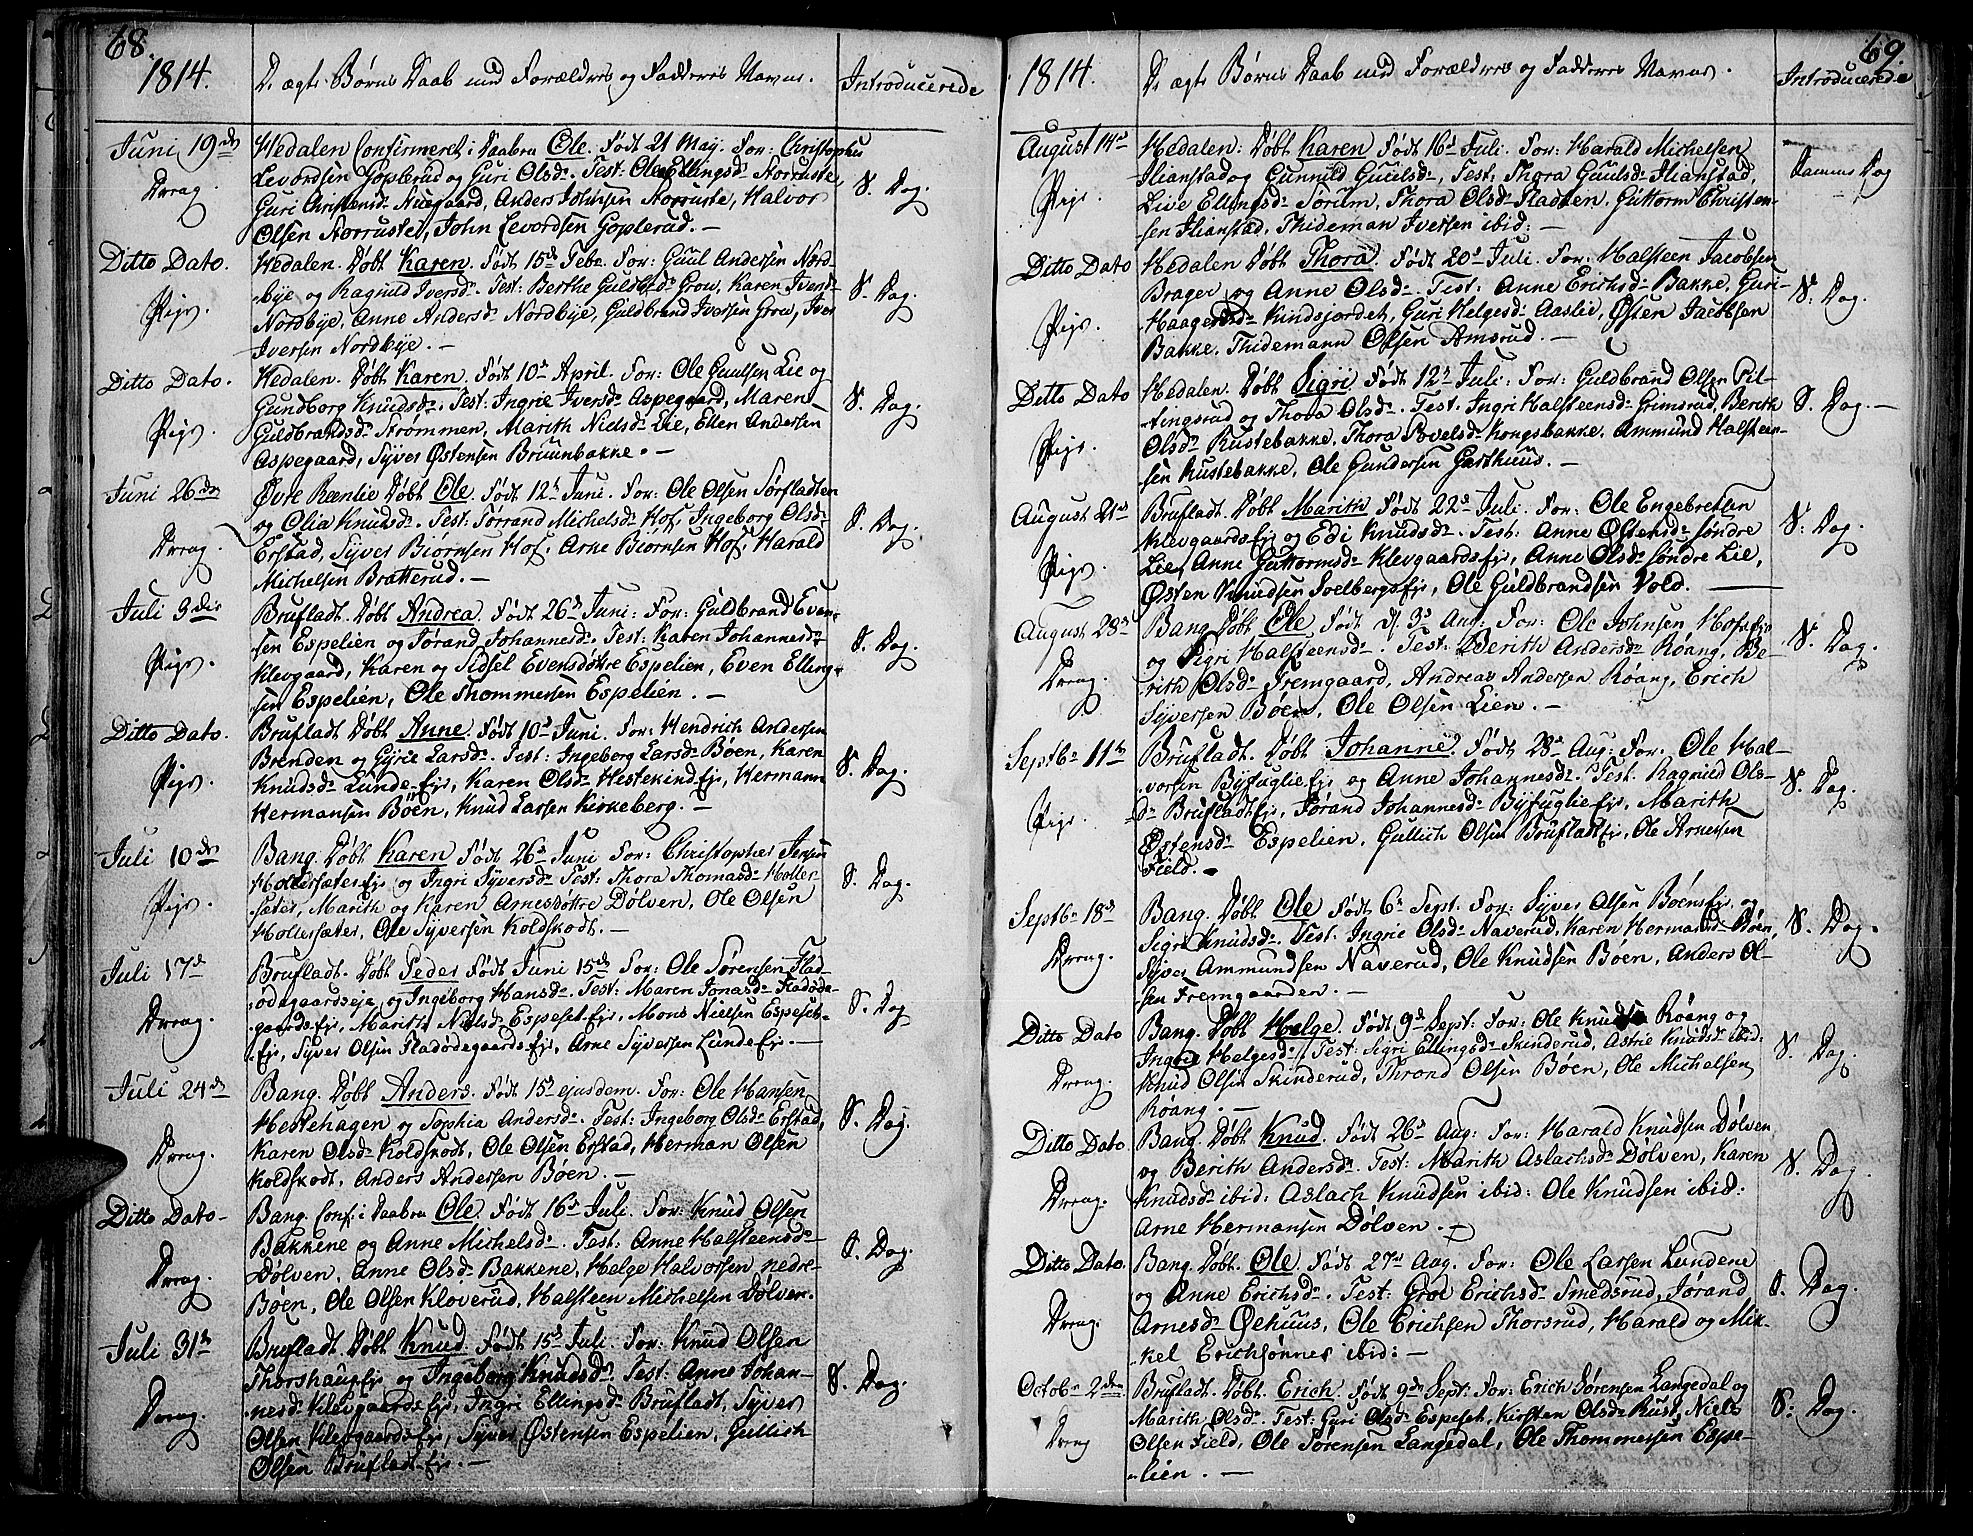 68.
1814.
De ægte Børns Daab med Forældres og Faddres Navne.
Introducerede
Juni 19de
Dreng.
Hedalen Confirmeret i Daaben Ole. Født 21 May. For: Christopher
Levordsen Goplerud og Guri Olsdr. Test: Ole Ellingsdr Storruste,
Guri Christensdr Nuegaard, Anders Johnsen Storruste, Halvor
Olsen Storruste, John Levordsen Goplerud. —
S. Dag.
Ditto Dato.
Pige.
Hedalen. Døbt Karen. Født 15de Febr. For: Guul Andersen Nord-
bye og Ragnild Iversdr. Test: Berthe Guldbrdr Grow, Karen Iversdr
Nordbye, Anne Andersdr Nordbye, Guldbrand Iversen Grow, Iver
Iversen Nordbye. —
S. Dag.
Ditto Dato.
Pige.
Hedalen. Døbt Karen. Født 10de April. For: Ole Guulsen Lie og
Gundborg Knudsdr. Test: Ingrie Iversdr Aspegaard, Maren
Guldbrandsdr Strømmen, Marith Nielsdr Lie, Ellen Andersen
Aspegaard, Syver Østensen Bruunbakke. —
S. Dag.
Juni 26de
Dreng.
Øvre Rænlie Døbt Ole. Født 12te Juni. For: Ole Olsen Sørfladten
og Olia Knudsdr. Test: Jørrand Michelsdr Hof, Ingeborg Olsdr
Erstad, Syver Biørnsen Hof, Arne Biørnsen Hof, Harald
Michelsen Bratterud. —
S. Dag.
Juli 3die
Pige.
Brufladt. Døbt Andrea. Født 26de Juni. For: Guldbrand Even-
sen Espelien og Jørand Johannesdr. Test: Karen Johannesdr
Klevgaard, Karen og Sidsel Evensdøttre Espelien, Even Elling-
sen Espelien, Ole Thommessen Espelien. —
S. Dag.
Ditto Dato.
Pige.
Brufladt Døbt Anne. Født 10de Juni. For: Hendrich Andersen
Brenden og Gyrie Larsdr. Test: Ingeborg Larsdr Bøen, Karen
Knudsdr Lunde-Eje, Karen Olsdr Hestekind Eje, Hermann
Hermansen Bøen, Knud Larsen Kirkeberg. —
S. Dag.
Juli 10de
Pige.
Bang. Døbt Karen Født 26de Juni For: Christopher Jensen
Hollersæter Eje og Ingri Syversdr Test: Thora Thomasdr Holler-
sæter, Marith og Karen Arnesdøttre Dølven, Ole Olsen
Hollersæter, Ole Syversen Koldskodt. —
S. Dag.
Juli 17de
Dreng.
Brufladt. Døbt Peder Født Juni 15de For: Ole Sørensen Flad-
ødegaardseje, og Ingeborg Hansdr. Test: Maren Jonasdr Fladøde-
gaards Eje, Marith Nielsdr Espeset Eje, Mons Nielsen Espeset-
Eje, Syver Olsen Fladødegaards Eje, Arne Syversen Lunde Eje. —
S. Dag.
Juli 24de
Dreng.
Bang. Døbt Anders. Født 15de ejusdem. For: Ole Hansen
Hestehagen og Sophia Andersdr. Test: Ingeborg Olsdr Erstad,
Karen Olsdr Koldskodt, Ole Olsen Erstad, Herman Olsen
Koldskodt, Anders Andersen Bøen. —
S. Dag.
Ditto Dato
Dreng.
Bang. Conf: i Daaben Ole. Født 16de Juli. For: Knud Olsen
Bakkene og Anne Michelsdr. Test: Anne Halsteensdr
Dølven, Anne Olsdr Bakkene, Helge Halvorsen nedre-
Bøen, Ole Olsen Kloverud, Halsteen Michelsen Dølven.
S. Dag.
Juli 31te
Dreng.
Brufladt. Døbt Knud. Født 15de Juli. For: Knud Olsen
Thorshaug Eje og Ingeborg Knudsdr. Test: Anne Johan-
nesdr Klevgaards Eje, Ingri Ellingsdr Brufladt, Syver
Olsen Klevgaards Eje, Syver Østensen Espelien, Gullich
Olsen Brufladt Eje. —
S. Dag.
69.
1814.
De ægte Børns Daab med Forældres og Faddres Navne.
Introducerede
August 14de
Pige.
Hedalen: Døbt Karen Født 16de Juli. For: Harald Michelsen
Ilianstad og Gunnild Guulsdr, Test: Thora Guulsdr Ilianstad,
Live Ellingsdr Sørum, Thora Olsdr Fladten, Guttorm Christen-
sen Ilianstad, Thideman Iversen ibid: —
Samme Dag
Ditto Dato
Pige.
Hedalen Døbt Thora. Født 20de Juli. For: Halsteen Jacobsen
Brager og Anne Olsdr. Test: Anne Erichsdr Bakke, Guri
Haagensdr Kindsjordet, Guri Helgesdr Aaslie, Østen Jacobsen
Bakke. Thidemann Olsen Amsrud. —
S. Dag.
Ditto Dato
Pige.
Hedalen. Døbt Sigri Født 12te Juli: For: Guldbrand Olsen Pil-
tingsrud og Thora Olsdr. Test: Ingri Halsteensdr Grimsrud, Berith
Olsdr Rustebakke, Thora Povelsdr Kongsbakke, Ammund Halsteen-
sen Rustebakke, Ole Gundersen Garthuus. —
S. Dag. —
August 21de
Pige.
Brufladt. Døbt Marith Født 22de Juli. For: Ole Engebretsen
Klevgaards Eje og Edi Knudsdr. Test: Anne Østensdr søndre
Lie, Anne Guttormsdr Klevgaards Eje, Anne Olsdr søndre Lie,
Østen Knudsen Soelbergs Eje, Ole Guldbrandsen Vold. —
S. Dag.
August 28de
Dreng.
Bang Døbt Ole Født d. 3de Aug. For: Ole Johnsen Hofs Eje
og Sigri Halsteensdr. Test: Berith Andersdr Røang, Be-
rith Olsdr Fremgaard, Andreas Andersen Røang, Erich
Syversen Bøen, Ole Olsen Lien. —
S. Dag.
Septbr 11te
Pige.
Brufladt. Døbt Johanne. Født 28de Aug: For: Ole Hal-
vorsen Byfuglie Eje og Anne Johannesdr. Test. Ragnild Ols-
dr Brufladt Eje, Jørand Johannesdr Byfuglie Eje, Marith
Østensdr Espelien, Gullich Olsen Brufladt Eje, Ole Arnesen
Field. —
S. Dag.
Septbr 18de
Dreng.
Bang. Døbt Ole Født 6te Sept. For: Syver Olsen Bøens Eje, og
Sigri Knudsdr. Test: Ingrie Olsdr Naverud, Karen Hermansdr Bøen,
Syver Ammundsen Naverud, Ole Knudsen Bøen, Anders Ol-
sen Fremgaarden. —
S. Dag.
Ditto Dato
Dreng.
Bang. Døbt Helge. Født 9de Sept: For: Ole Knudsen Røang og
Ingrie Helgesdr. Test: Sigri Ellingsdr Skinderud, Astrie Knudsdr ibid:
Knud Olsen Skinderud, Thrond Olsen Bøen, Ole Michelsen
Røang. —
S. Dag.
Ditto Dato
Dreng.
Bang. Døbt Knud. Født 26de Aug: For: Harald Knudsen Dølven
og Berith Andersdr. Test: Marith Aslachsdr Dølven, Karen
Knudsdr ibid: Aslach Knudsen ibid: Ole Knudsen ibid:
Arne Hermansen Dølven. —
S. Dag.
Ditto Dato.
Dreng.
Bang. Døbt. Ole. Født 27de Aug. For: Ole Larsen Lundene
og Anne Erichsdr. Test: Groe Erichsdr Smedsrud, Jørand
Arnesdr Øehuus, Ole Erichsen Thorsrud, Harald og Mik-
kel Erichsønner ibid: —
S. Dag.
Octobr 2den
Dreng
Brufladt. Døbt. Erich. Født 9de Sept: For: Erich Sørensen Langedal og
Marith Olsdr. Test: Gyri Olsdr Espeset, Kirsten Olsdr Rust, Niels
Olsen Field, Ole Sørensen Langedal, Ole Thommessen Espe-
lien. —
S. Dag.